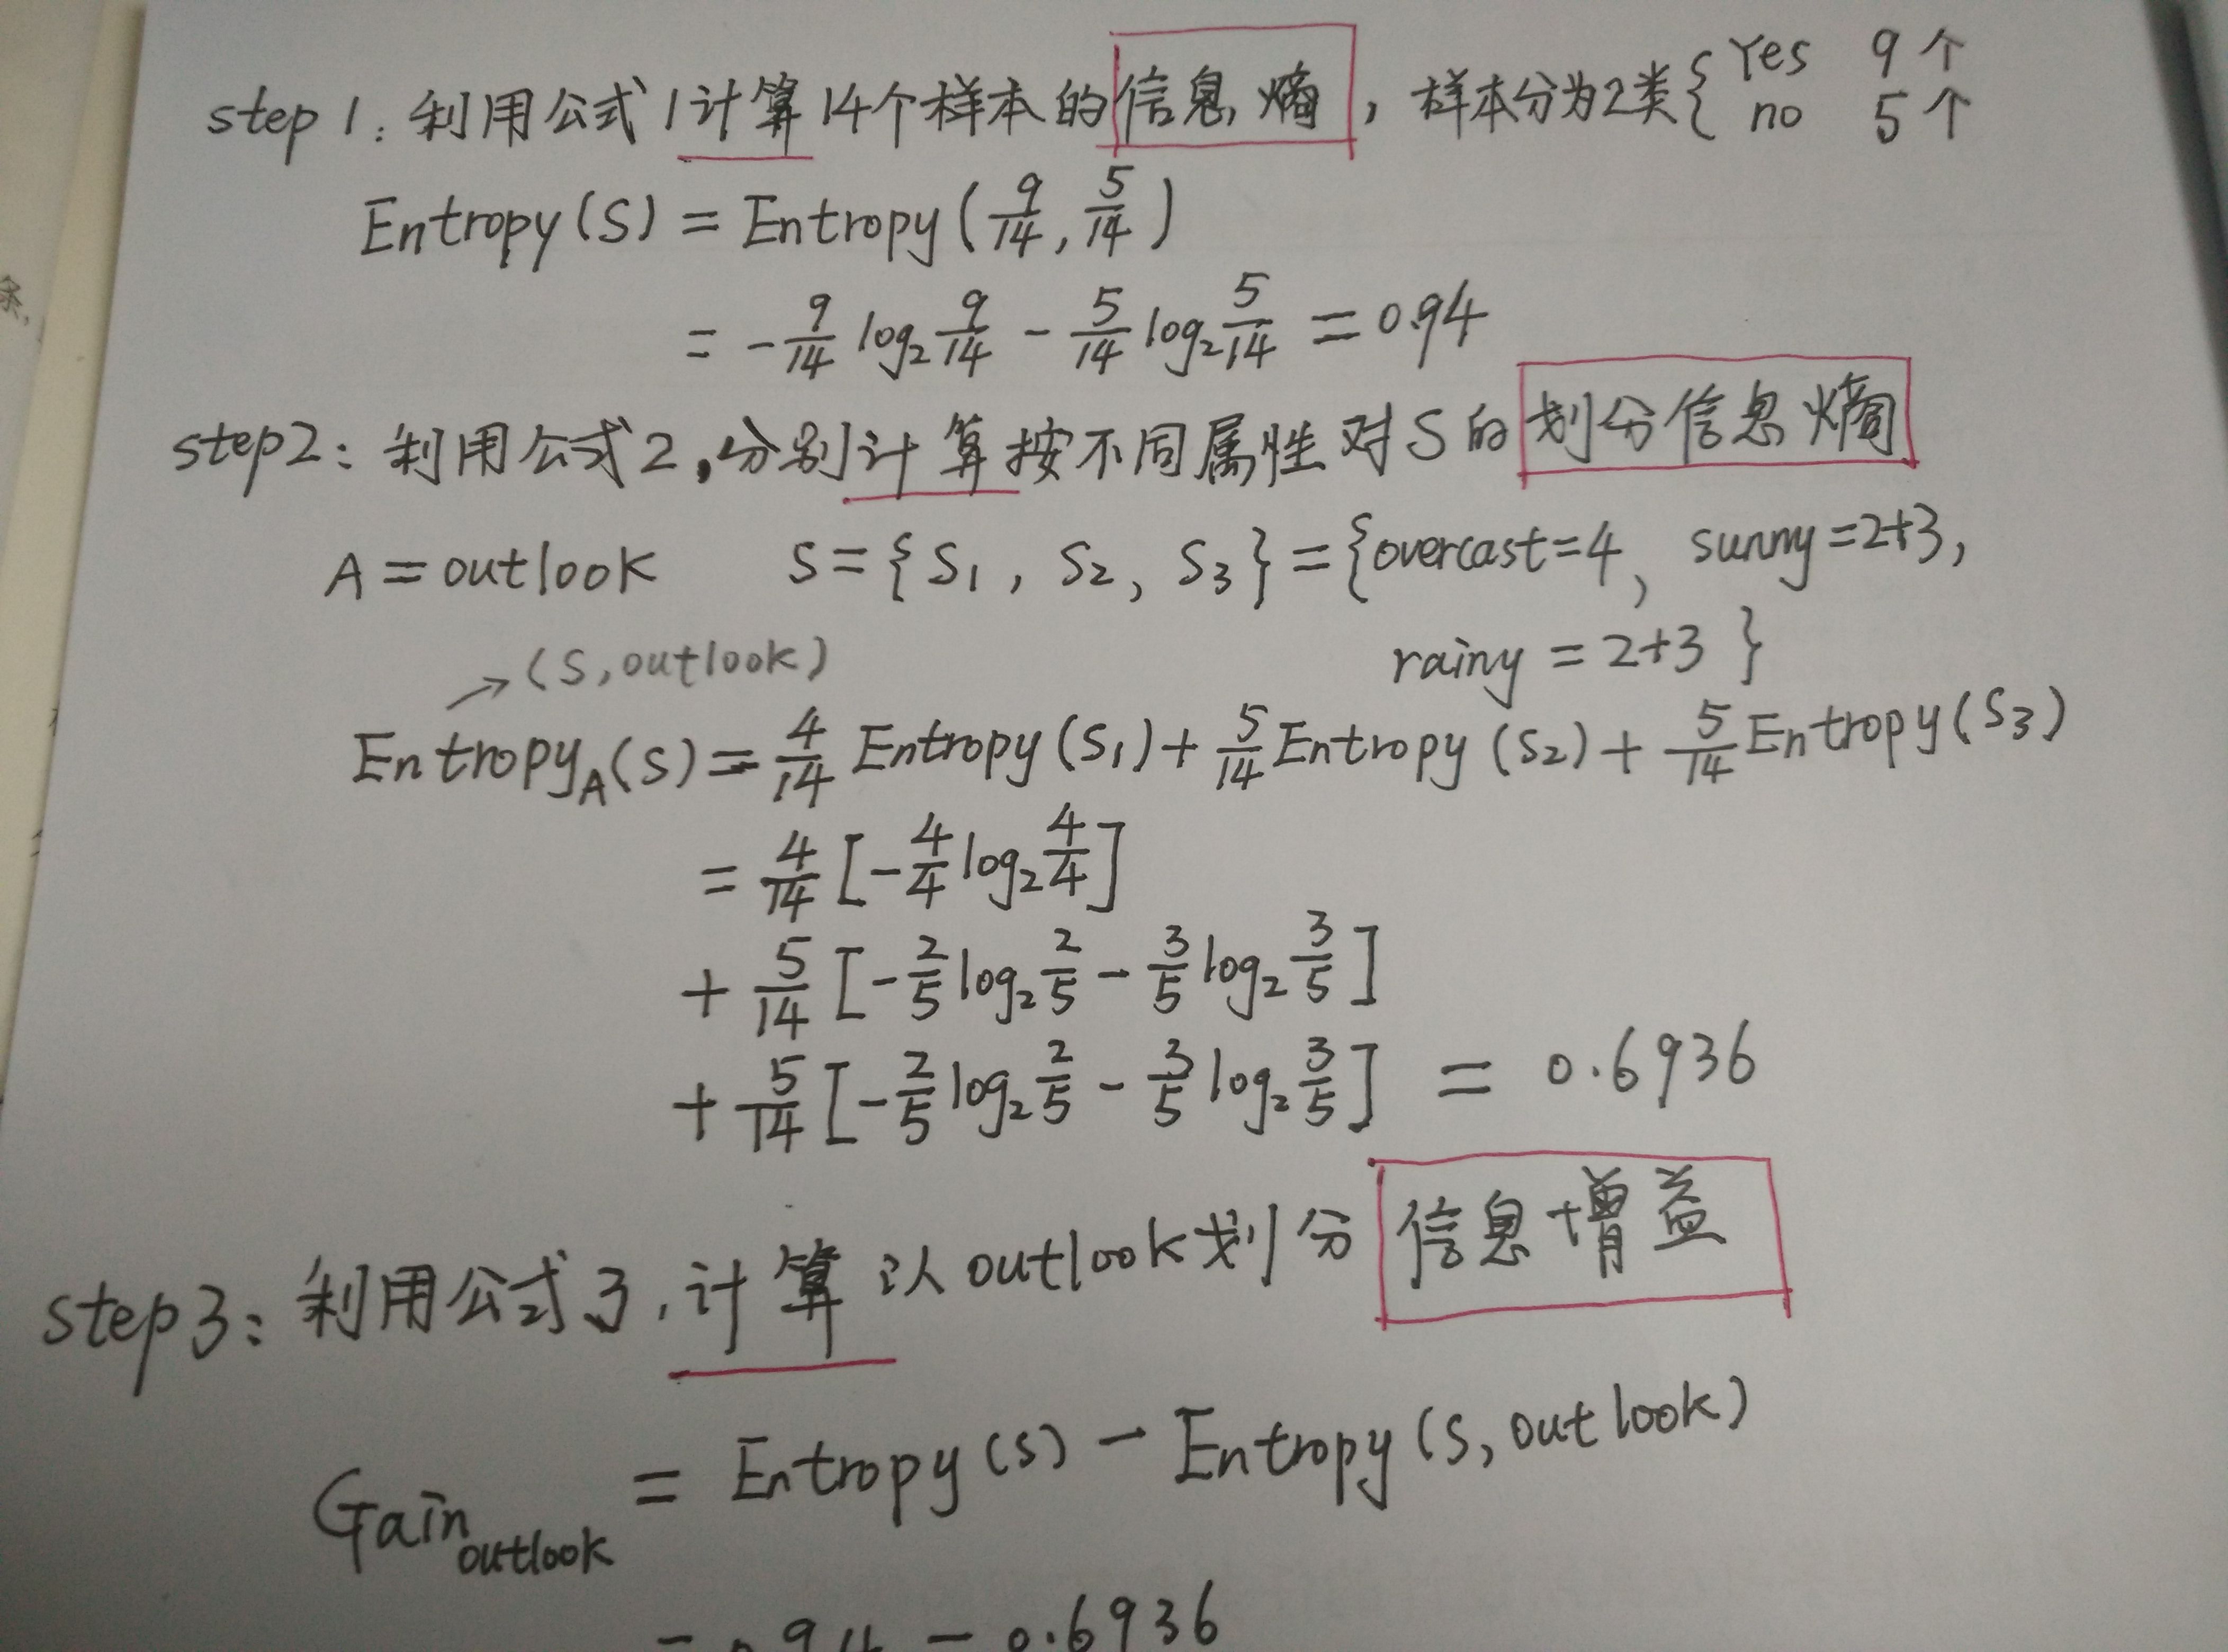 step1: 利用公式1计算14个样本的信息熵, 样本分为2类{ Yes 9个
no 5个
Entropy(S) = Entropy(9/14, 5/14)
= -9/14 log₂ 9/14 - 5/14 log₂ 5/14 = 0.94
step2: 利用公式2,分别计算按不同属性对S的划分信息熵
A = outlook S = {S₁, S₂, S₃} = {overcast=4, sunny=2+3,
rainy = 2+3 }
→(S,outlook)
Entropy_A(S) = 4/14 Entropy(S₁) + 5/14 Entropy(S₂) + 5/14 Entropy(S₃)
= 4/14 [-4/4 log₂ 4/4]
+ 5/14 [-2/5 log₂ 2/5 - 3/5 log₂ 3/5]
+ 5/14 [-2/5 log₂ 2/5 - 3/5 log₂ 3/5] = 0.6936
step3: 利用公式3,计算以outlook划分信息增益
Gain_outlook = Entropy(S) - Entropy(S,outlook)
= 0.94 - 0.6936